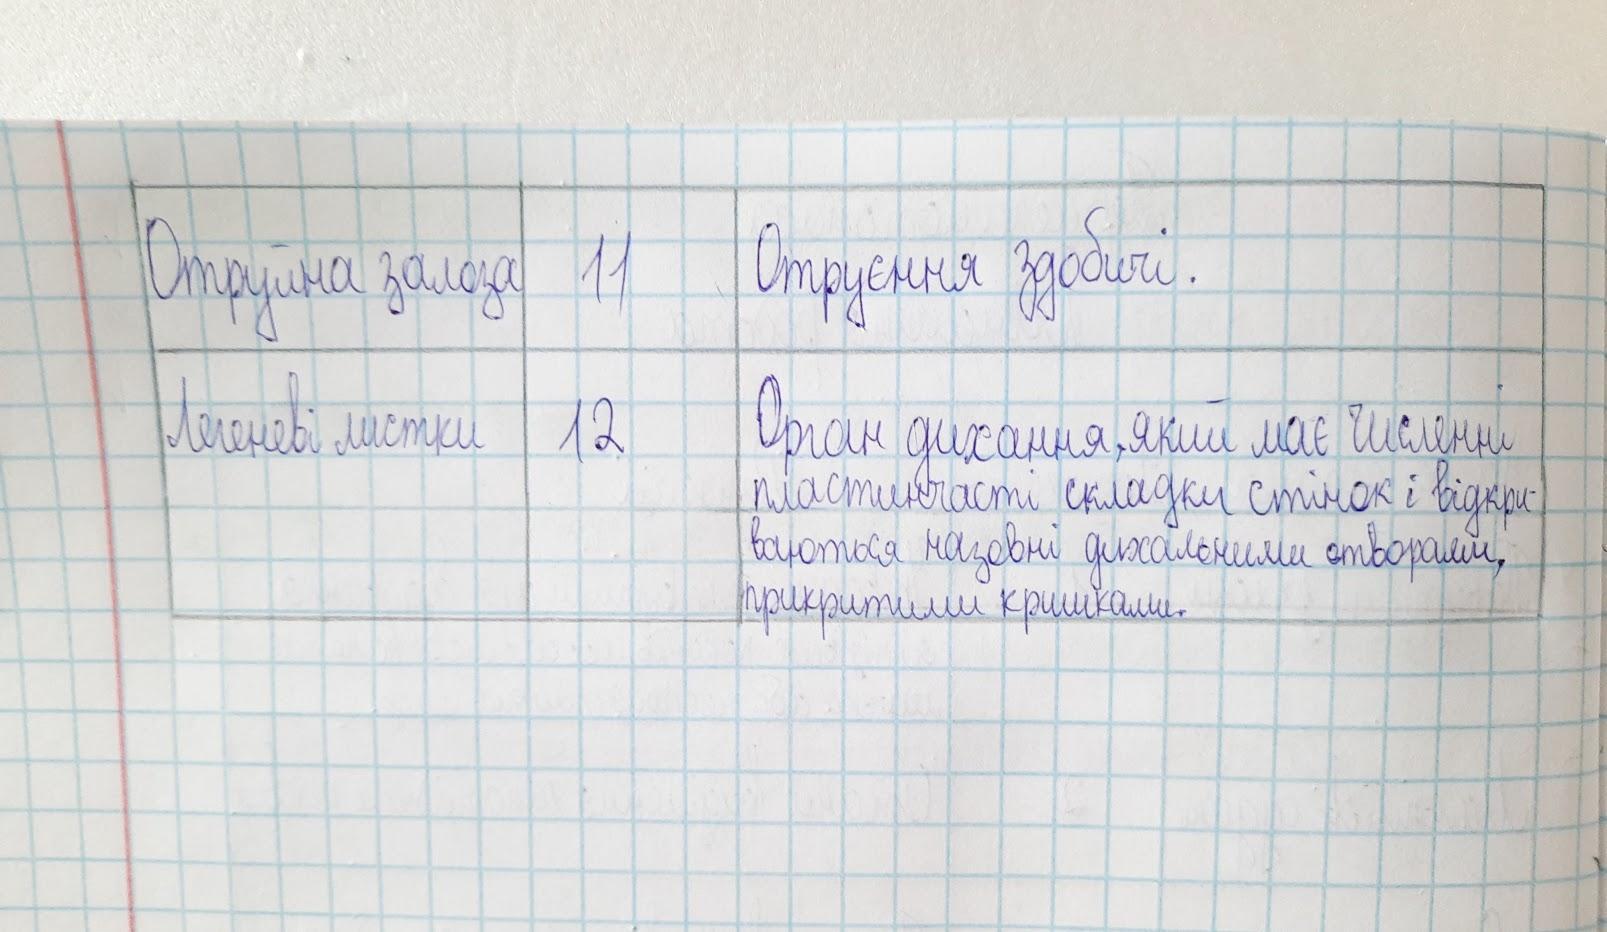 Отруйна залоза 11 Отруєння здобичі.
Легеневі листки 12 Орган дихання, який має численні
пластинчасті складки стінок і відкри-
ваються назовні дихальними отворами,
прикритими кришками.